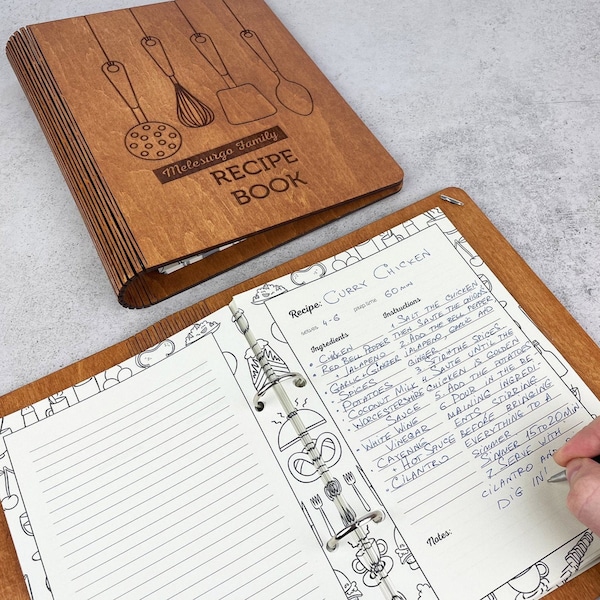 Melesurgo Family
RECIPE
BOOK
Recipe: CURRY CHICKEN
4-6 60MIN
Ingredients Instructions
• CHICKEN 1 SALT THE CHICKEN
RED BELL PEPPER THEN SAUTE THE ONIONS
• JALAPENO 2 ADD THE BELL PEPPER
• GARLIC & GINGER JALAPENO, GARLIC AND
SPICES GINGER
POTATOES 3 STIR THE SPICES
COCONUT MILK 4 SAUTE UNTIL THE
• WORCESTERSHIRE CHICKEN IS GOLDEN
SAUCE 5 ADD THE POTATOES
• WHITE WINE 6 POUR IN THE RE-
VINEGAR MAINING INGREDI-
CAYENNE ENTS STIRRING
• HOT SAUCE BEFORE BRINGING
CILANTRO EVERYTHING TO A
SIMMER
SIMMER 15 TO 20 MIN
7 SERVE WITH
CILANTRO AND
DIG IN!
Notes: